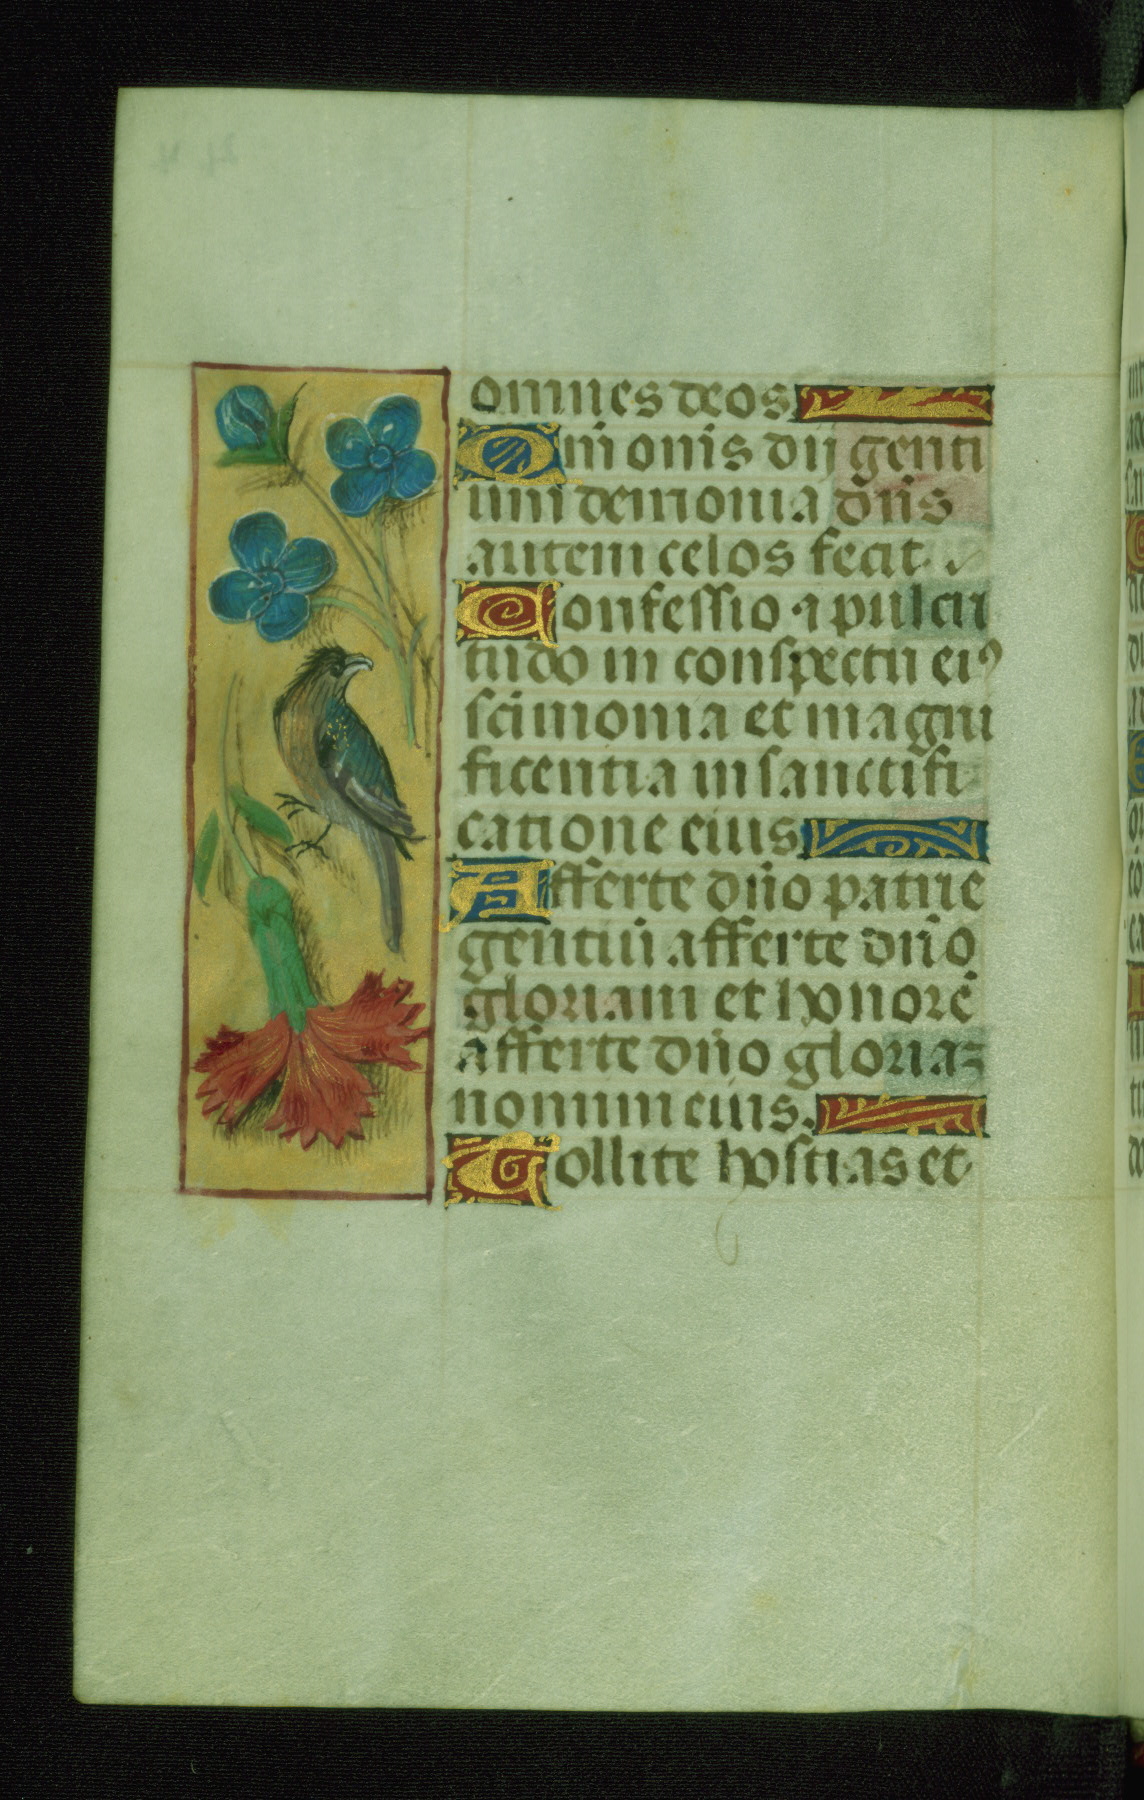 omnes deos
Qm̄ om̄s dij genti
um demonia dn̄s
autem celos fecit.
Confessio ⁊ pulcri
tudo in conspectu ei⁹
scimonia et magni
ficentia in sanctifi
catione eius
Afferte dn̄o patrie
gentiū afferte dn̄o
gloriam et honorē
afferte dn̄o gloriaꝫ
nomini eius.
Tollite hostias et